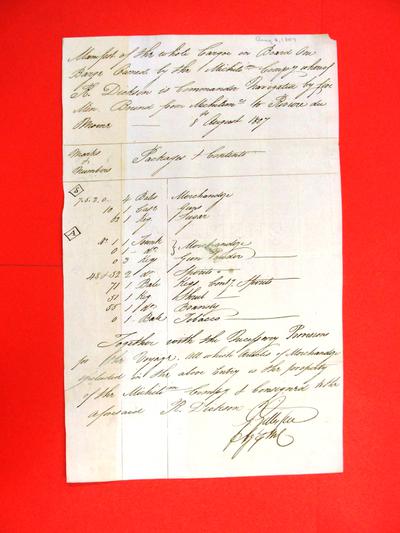 Aug 8, 1807
Manifest of the whole Cargoe on Board One
Barge Owned by the Michilm Compy whereof
R. Dickson is Commander Navigated by five
Men Bound from Michilim to Riviere du
Moine 8th August 1807
Marks & Numbers Packages & Contents
7.5.2.0. 4 Bales Merchandze
10 1 Case Guns
63 1 Keg Sugar
1 Trunk } Merchandze
0 1 do
0 2 Kegs Gun Powder
48 & 52 2 do Spirits
71 1 Bale Kegs Contg Spirits
51 1 Keg Shrub
55 1 do Brandy
0 1 Bale Tobacco
Together with the Necessary Provisions
for the Voyage. All which Articles of Merchandze
included in the above Entry is the property
of the Michilim Compy & Consigned to the
aforesaid R. Dickson